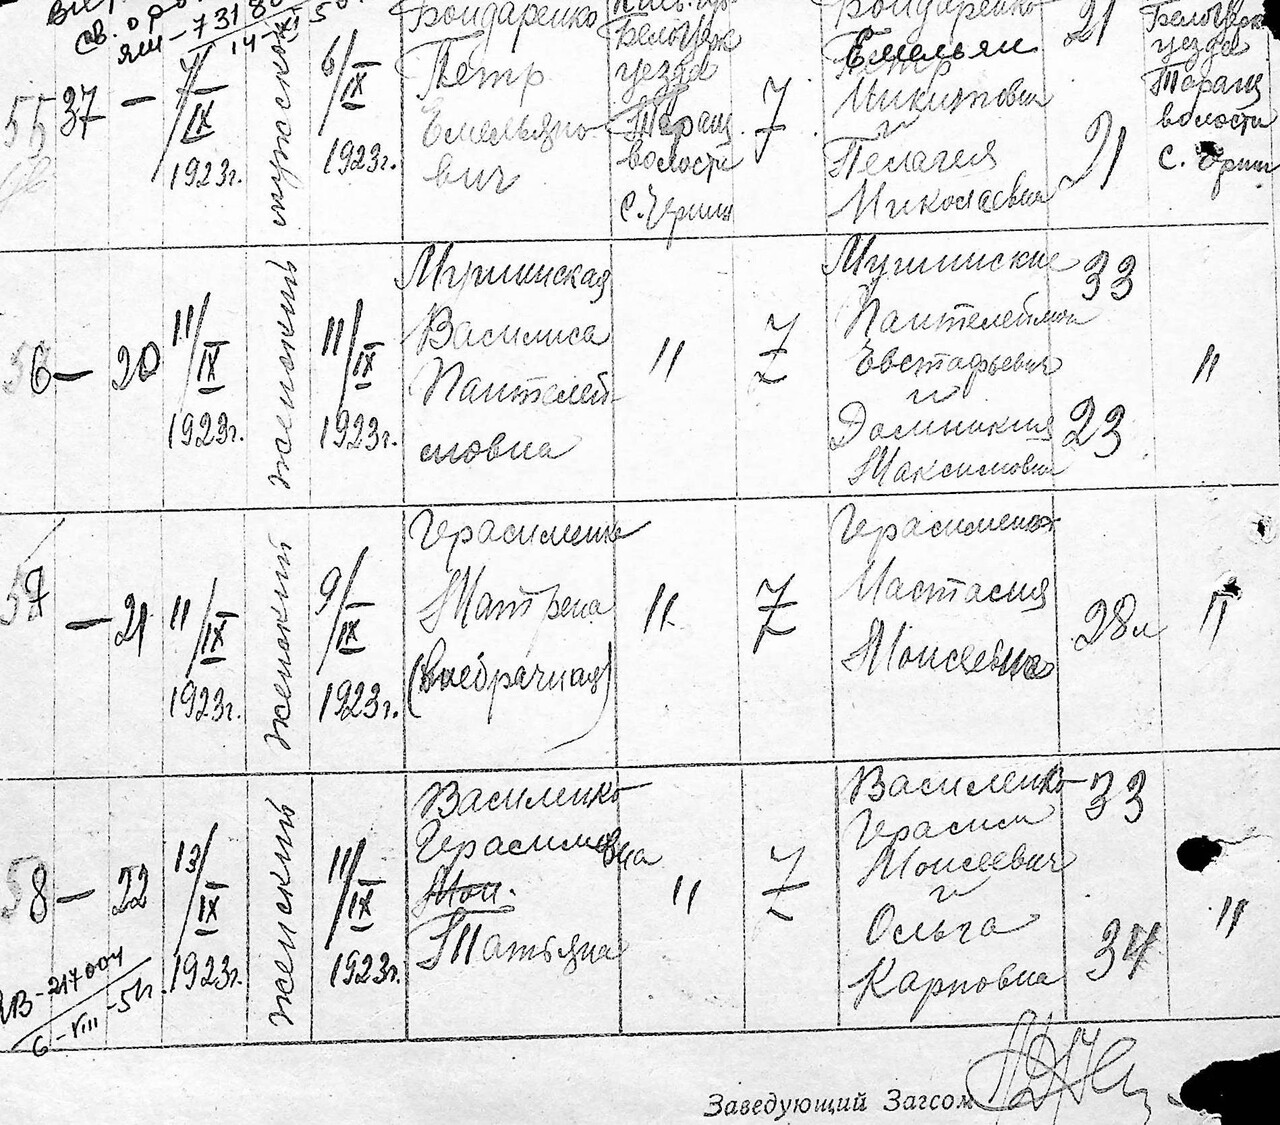 св.
ЯШ-7318
14-XI-50
55 37 — 7/IX 1923г. мужской 6/IX 1923г.
Бондаренко
Пётр
Емельяно-
вич
Белоцерк
уезда
Таращ
волости
7
Бондаренко
Емельян
Пётр
Никитович
и
Пелагея
Николаевна
21
21
Белоцерк
уезда
Таращ
волости
с.
56 — 20 11/IX 1923г. женский 11/IX 1923г.
Василиса
Пантелей
моновна
" 7
Пантелеймон
Евстафьевич
и
Домникия
Максимовна
33
23
"
57 — 21 11/IX 1923г. женский 9/IX 1923г.
Герасименко
Матрена
(внебрачная)
" 7
Герасименко
Настасия
Моисеевна
28л
"
58 — 22 13/IX 1923г. женский 11/IX 1923г.
Василенко
Герасимовна
Татьяна
" 7
Василенко
Герасим
Моисеевич
и
Ольга
Карповна
33
34
"
-217004
6-VIII-51г.
Заведующий Загсом